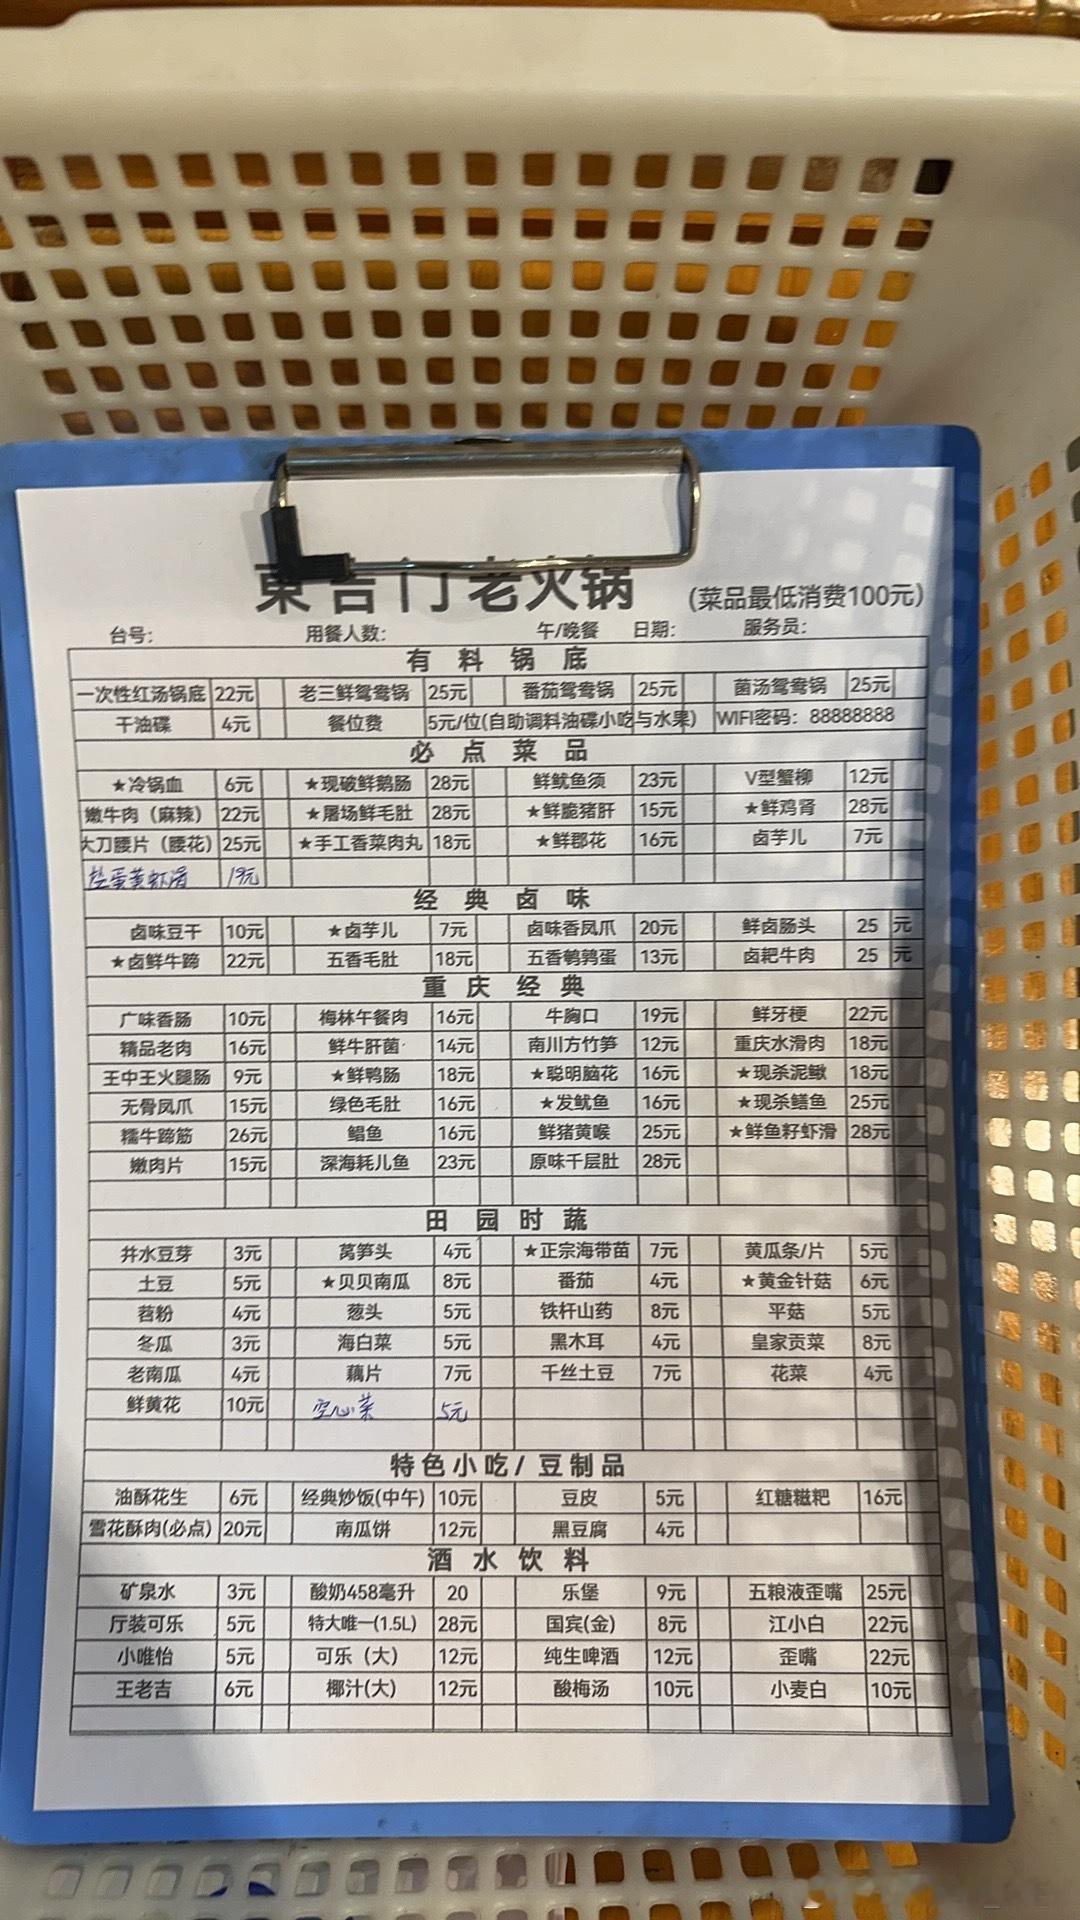 東吉门老火锅 (菜品最低消费100元)
台号: 用餐人数: 午/晚餐 日期: 服务员:
有料锅底
一次性红汤锅底 22元 老三鲜鸳鸯锅 25元 番茄鸳鸯锅 25元 菌汤鸳鸯锅 25元
干油碟 4元 餐位费 5元/位(自助调料油碟小吃与水果) WIFI密码: 88888888
必点菜品
★冷锅血 6元 ★现破鲜鹅肠 28元 鲜鱿鱼须 23元 V型蟹柳 12元
嫩牛肉(麻辣) 22元 ★屠场鲜毛肚 28元 ★鲜脆猪肝 15元 ★鲜鸡肾 28元
大刀腰片(腰花) 25元 ★手工香菜肉丸 18元 ★鲜郡花 16元 卤芋儿 7元
蛋黄虾滑 19元
经典卤味
卤味豆干 10元 ★卤芋儿 7元 卤味香凤爪 20元 鲜卤肠头 25 元
★卤鲜牛蹄 22元 五香毛肚 18元 五香鹌鹑蛋 13元 卤耙牛肉 25 元
重庆经典
广味香肠 10元 梅林午餐肉 16元 牛胸口 19元 鲜牙梗 22元
精品老肉 16元 鲜牛肝菌 14元 南川方竹笋 12元 重庆水滑肉 18元
王中王火腿肠 9元 ★鲜鸭肠 18元 ★聪明脑花 16元 ★现杀泥鳅 18元
无骨凤爪 15元 绿色毛肚 16元 ★发鱿鱼 16元 ★现杀鳝鱼 25元
糯牛蹄筋 26元 鲳鱼 16元 鲜猪黄喉 25元 ★鲜鱼籽虾滑 28元
嫩肉片 15元 深海耗儿鱼 23元 原味千层肚 28元
田园时蔬
井水豆芽 3元 莴笋头 4元 ★正宗海带苗 7元 黄瓜条/片 5元
土豆 5元 ★贝贝南瓜 8元 番茄 4元 ★黄金针菇 6元
苕粉 4元 葱头 5元 铁杆山药 8元 平菇 5元
冬瓜 3元 海白菜 5元 黑木耳 4元 皇家贡菜 8元
老南瓜 4元 藕片 7元 千丝土豆 7元 花菜 4元
鲜黄花 10元 空心菜 5元
特色小吃/豆制品
油酥花生 6元 经典炒饭(中午) 10元 豆皮 5元 红糖糍粑 16元
雪花酥肉(必点) 20元 南瓜饼 12元 黑豆腐 4元
酒水饮料
矿泉水 3元 酸奶458毫升 20 乐堡 9元 五粮液歪嘴 25元
厅装可乐 5元 特大唯一(1.5L) 28元 国宾(金) 8元 江小白 22元
小唯怡 5元 可乐(大) 12元 纯生啤酒 12元 歪嘴 22元
王老吉 6元 椰汁(大) 12元 酸梅汤 10元 小麦白 10元